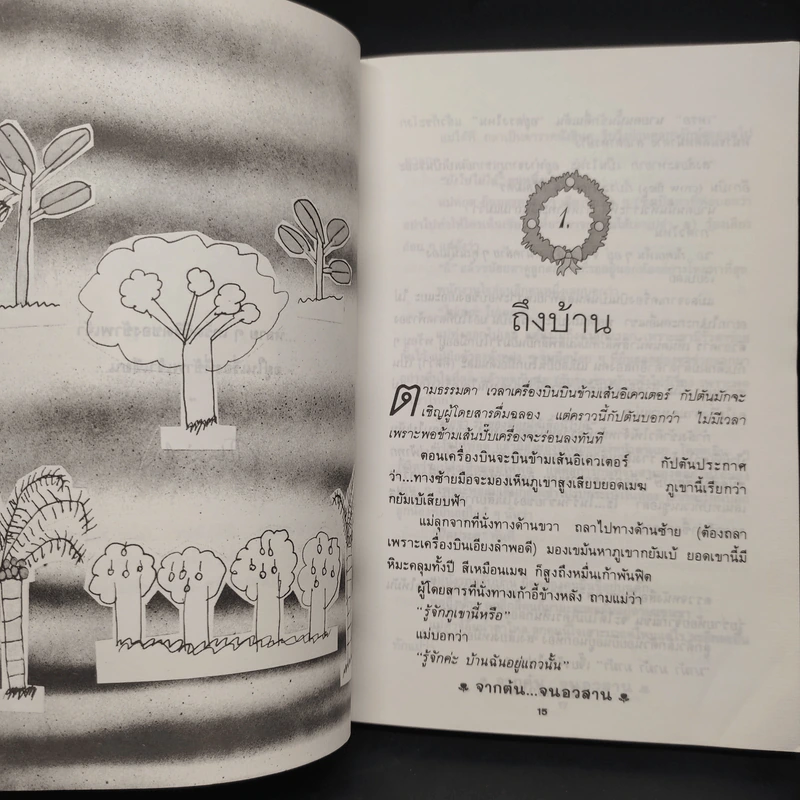 1.
ถึงบ้าน
ตามธรรมดา เวลาเครื่องบินบินข้ามเส้นอิเควเตอร์ กัปตันมักจะ
เชิญผู้โดยสารดื่มฉลอง แต่คราวนี้กัปตันบอกว่า ไม่มีเวลา
เพราะพอข้ามเส้นปั๊บเครื่องจะร่อนลงทันที
ตอนเครื่องบินจะบินข้ามเส้นอิเควเตอร์ กัปตันประกาศ
ว่า...ทางซ้ายมือจะมองเห็นภูเขาสูงเสียบยอดเมฆ ภูเขานี้เรียกว่า
กยัมเบ้เสียบฟ้า
แม่ลุกจากที่นั่งทางด้านขวา ถลาไปทางด้านซ้าย (ต้องถลา
เพราะเครื่องบินเอียงลำพอดี) มองเขม้นหาภูเขากยัมเบ้ ยอดเขานี้มี
หิมะคลุมทั้งปี สีเหมือนเมฆ ก็สูงถึงหมื่นเก้าพันฟิต
ผู้โดยสารที่นั่งทางเก้าอี้ข้างหลัง ถามแม่ว่า
“รู้จักภูเขานี้หรือ”
แม่บอกว่า
“รู้จักค่ะ บ้านฉันอยู่แถวนั้น”
จากต้น...จนอวสาน
15